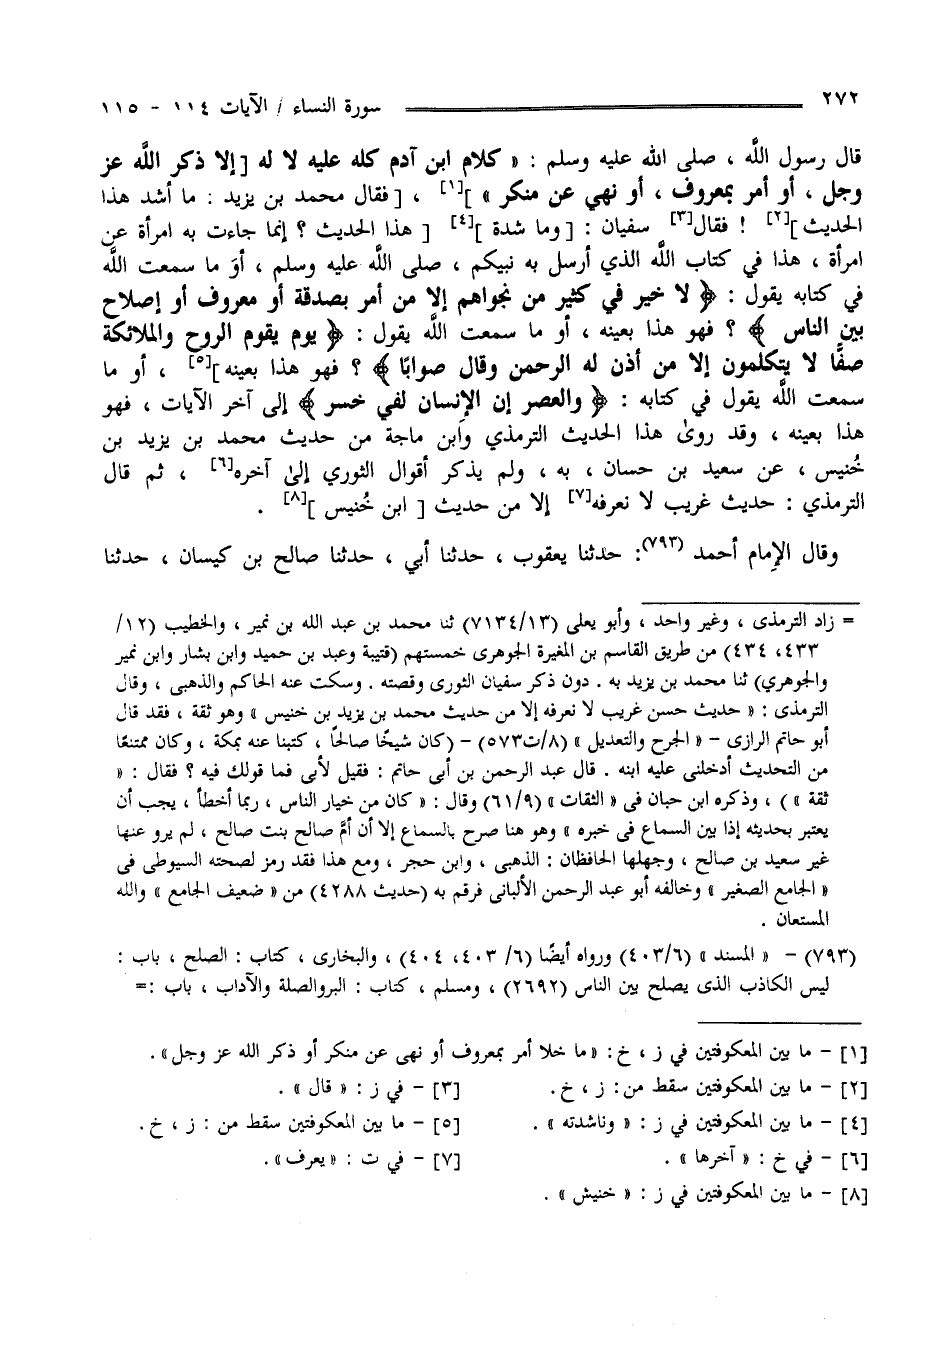 ٢٧٢ سورة النساء / الآيات ١١٤ - ١١٥
قال رسول اللَّه ، صلى الله عليه وسلم : « كلام ابن آدم كله عليه لا له [إلا ذكر اللَّه عز
وجل ، أو أمر بمعروف ، أو نهي عن منكر » ][١] ، [ فقال محمد بن يزيد : ما أشد هذا
الحديث][٢] ! فقال[٣] سفيان : [ وما شدة ][٤] [ هذا الحديث ؟ إنما جاءت به امرأة عن
امرأة ، هذا في كتاب اللَّه الذي أرسل به نبيكم ، صلى اللَّه عليه وسلم ، أوَ ما سمعت اللَّه
في كتابه يقول : ﴿ لا خير في كثير من نجواهم إلا من أمر بصدقة أو معروف أو إصلاح
بين الناس ﴾ ؟ فهو هذا بعينه ، أو ما سمعت اللَّه يقول : ﴿ يوم يقوم الروح والملائكة
صفًّا لا يتكلمون إلا من أذن له الرحمن وقال صوابًا ﴾ ؟ فهو هذا بعينه][٥] ، أو ما
سمعت اللَّه يقول في كتابه : ﴿ والعصر إن الإنسان لفي خسر ﴾ إلى آخر الآيات ، فهو
هذا بعينه ، وقد روىٰ هذا الحديث الترمذي وابن ماجة من حديث محمد بن يزيد بن
خُنيس ، عن سعيد بن حسان ، به ، ولم يذكر أقوال الثوري إلىٰ آخره[٦] ، ثم قال
الترمذي : حديث غريب لا نعرفه[٧] إلا من حديث [ ابن خُنيس ][٨] .
وقال الإمام أحمد (٧٩٣): حدثنا يعقوب ، حدثنا أبي ، حدثنا صالح بن كيسان ، حدثنا
= زاد الترمذى ، وغير واحد ، وأبو يعلى (٧١٣٤/١٣) ثنا محمد بن عبد الله بن نمير ، والخطيب (١٢/
٤٣٣، ٤٣٤) من طريق القاسم بن المغيرة الجوهرى خمستهم (قتيبة وعبد بن حميد وابن بشار وابن نمير
والجوهري) ثنا محمد بن يزيد به . دون ذكر سفيان الثورى وقصته . وسكت عنه الحاكم والذهبى ، وقال
الترمذى : « حديث حسن غريب لا نعرفه إلا من حديث محمد بن يزيد بن خنيس » وهو ثقة ، فقد قال
أبو حاتم الرازى - « الجرح والتعديل » (٨/ت٥٧٣) - (كان شيخًا صالحًا ، كتبنا عنه بمكة ، وكان ممتنعًا
من التحديث أدخلنى عليه ابنه . قال عبد الرحمن بن أبى حاتم : فقيل لأبى فما قولك فيه ؟ فقال : «
ثقة » ) ، وذكره ابن حبان فى « الثقات » (٦١/٩) وقال : « كان من خيار الناس ، ربما أخطأ ، يجب أن
يعتبر بحديثه إذا بين السماع فى خبره » وهو هنا صرح بالسماع إلا أن أمَّ صالح بنت صالح ، لم يرو عنها
غير سعيد بن صالح ، وجهلها الحافظان : الذهبى ، وابن حجر ، ومع هذا فقد رمز لصحته السيوطى فى
« الجامع الصغير » وخالفه أبو عبد الرحمن الألبانى فرقم به (حديث ٤٢٨٨) من « ضعيف الجامع » والله
المستعان .
(٧٩٣) - « المسند » (٤٠٣/٦) ورواه أيضًا (٦/ ٤٠٣، ٤٠٤) ، والبخارى ، كتاب : الصلح ، باب :
ليس الكاذب الذى يصلح بين الناس (٢٦٩٢) ، ومسلم ، كتاب : البروالصلة والآداب ، باب :=
[١] - ما بين المعكوفتين في ز ، خ: «ما خلا أمر بمعروف أو نهى عن منكر أو ذكر الله عز وجل».
[٢] - ما بين المعكوفتين سقط من: ز ، خ. [٣] - في ز : « قال » .
[٤] - ما بين المعكوفتين في ز : « وناشدته » . [٥] - ما بين المعكوفتين سقط من : ز ، خ.
[٦] - في خ : « آخرها » . [٧] - في ت : «يعرف».
[٨] - ما بين المعكوفتين في ز : « خنيش » .